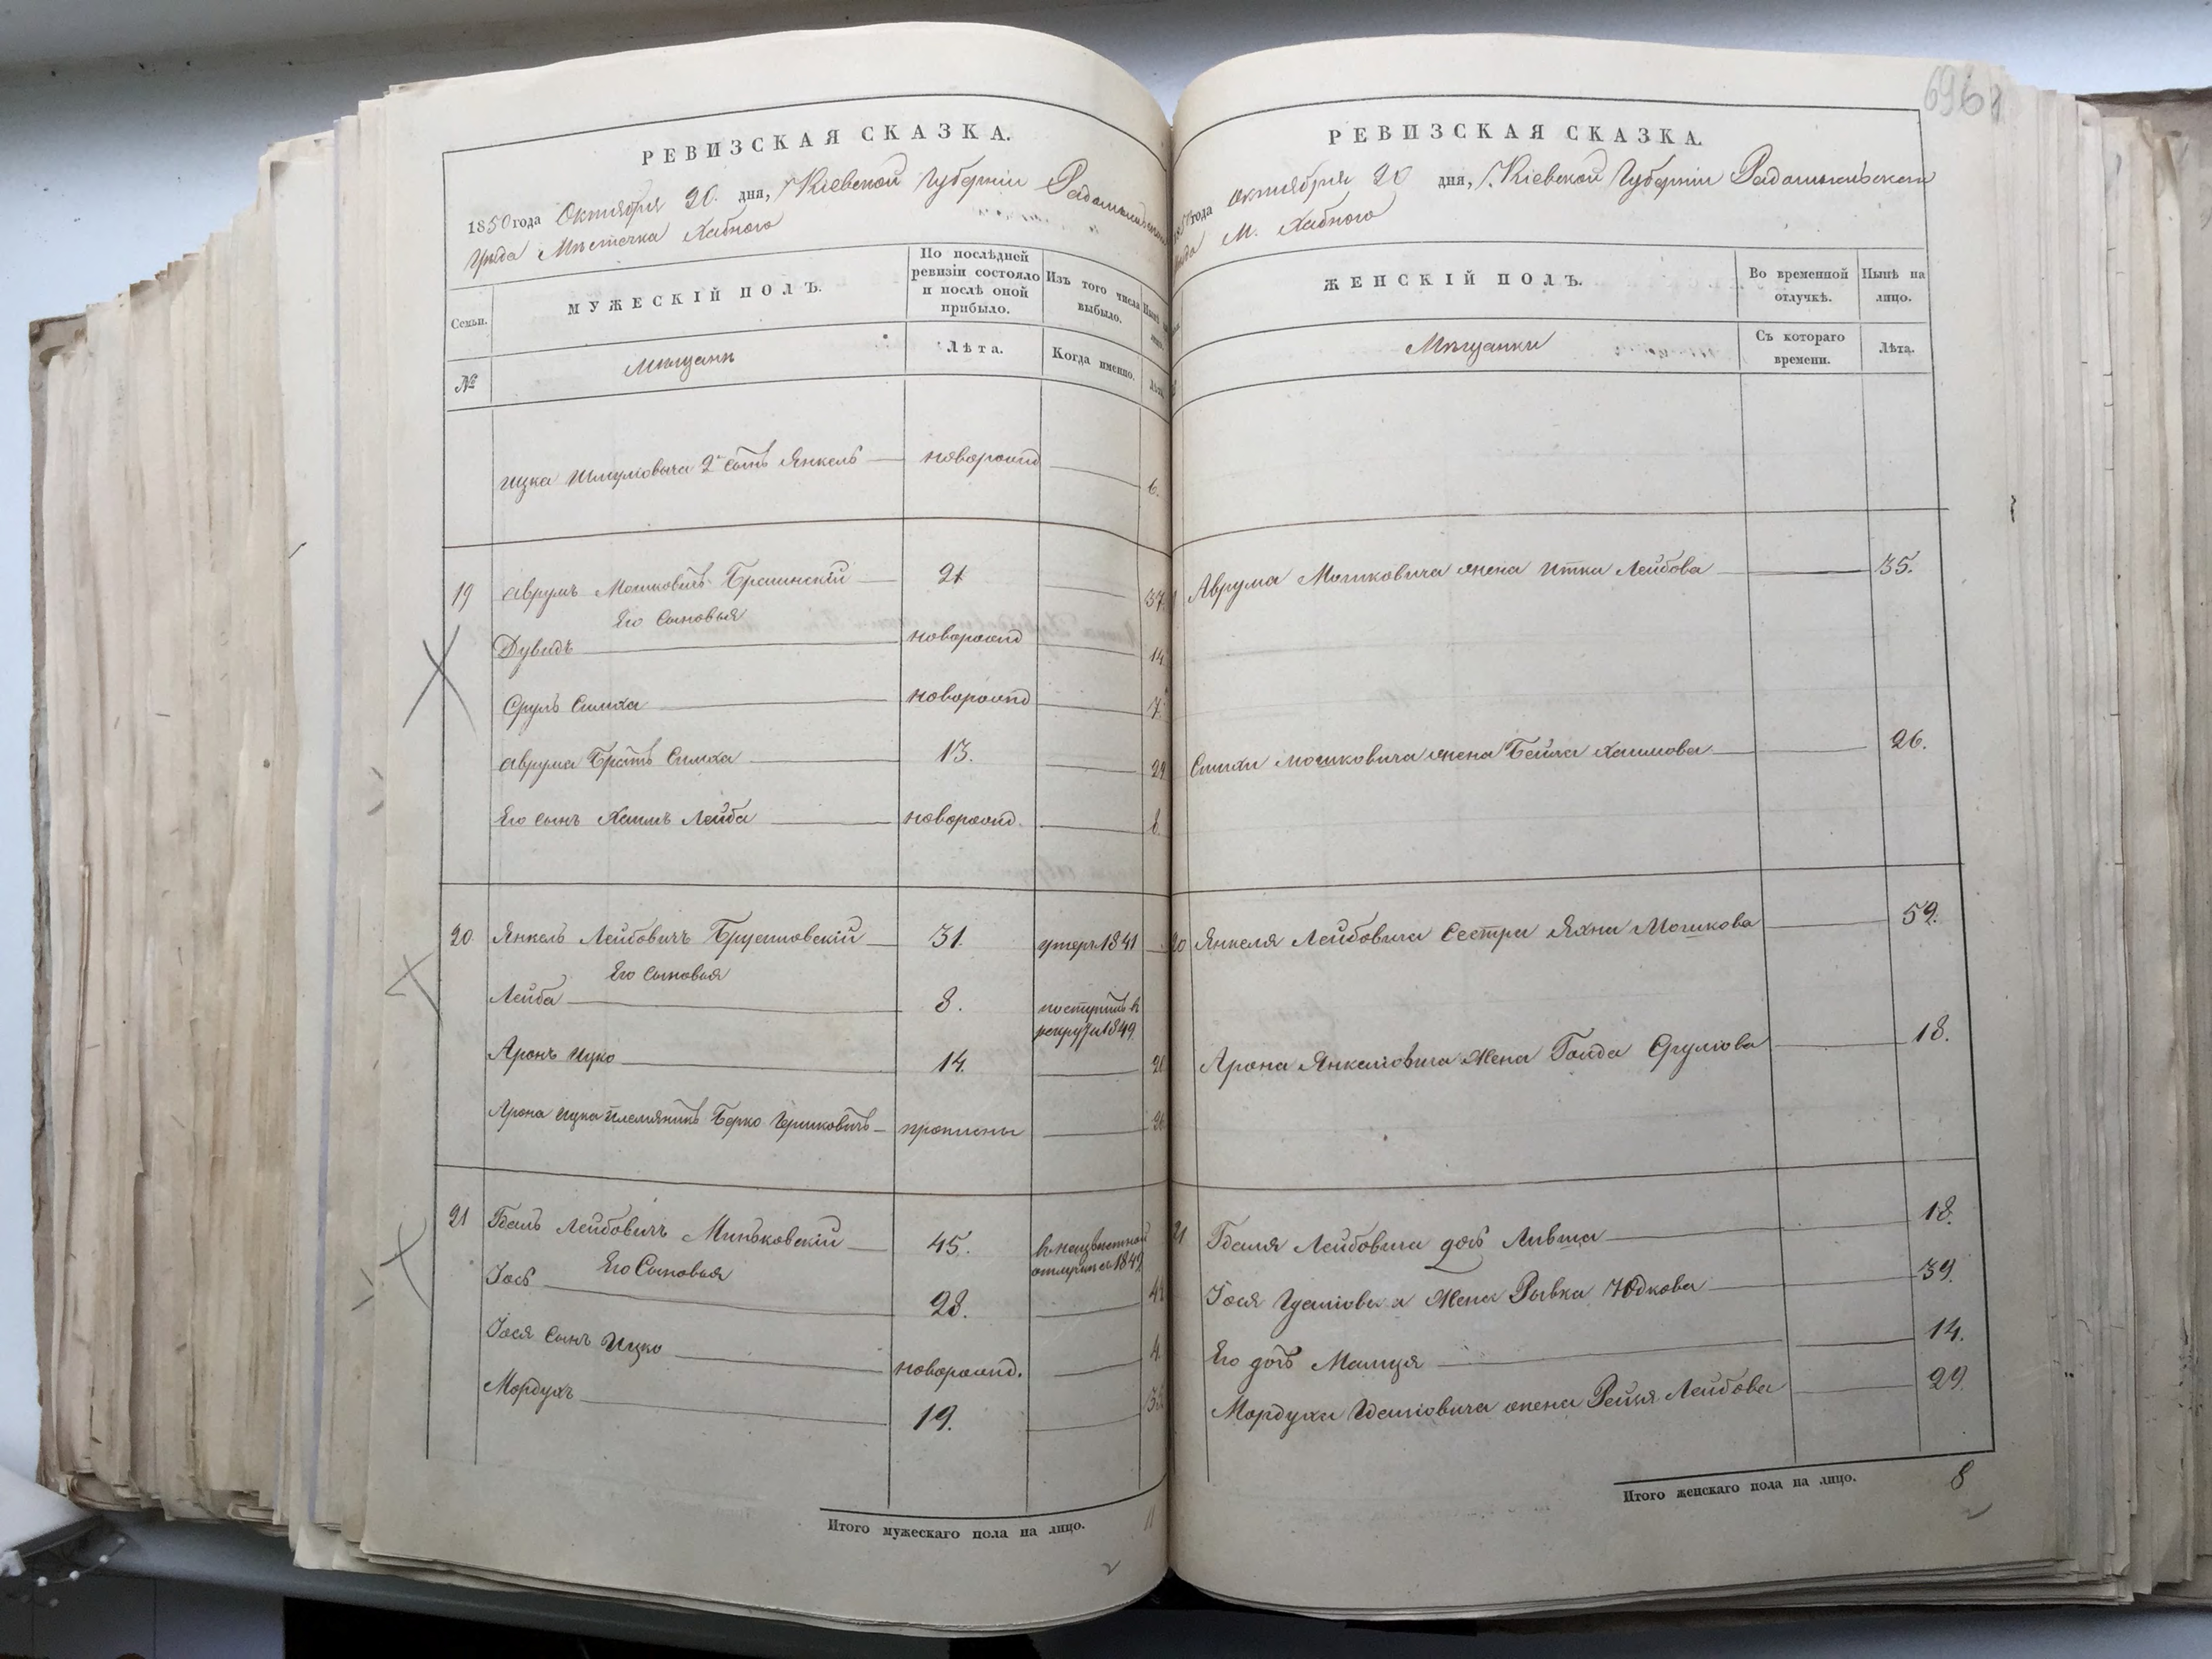 РЕВИЗСКАЯ СКАЗКА.
1850 года Октября 20. дня, Кіевской Губерніи
Уѣзда Мѣстечка Хабного
Семьи.
МУЖЕСКІЙ ПОЛЪ.
По послѣдней
ревизіи состояло
и послѣ оной
прибыло.
Изъ того числа
выбыло.
№
Мѣщанѣ
Лѣта.
Когда именно.
Лѣта.
Ицка Шмулiовича 2й сынъ Янкель новорожд 6.
19 Аврумъ Мошковичъ 21 37.
Его сыновья
Дувидъ новорожд 14.
Сруль Симха новорожд 7.
Аврума Братъ Симха 13. 29
Его сынъ Хаимъ Лейба новорожд. 8.
20 Янкель Лейбовичъ Брусиловскій 31. умеръ 1841
Его сыновья
Лейба 8. поступилъ в
рекруты 1849.
Аронъ Ицко 14.
Арона Ицка племянникъ Берко Гершковичъ прописны
21 Гдаль Лейбовичъ Миньковскій 45. в неизвѣстной
отлучкѣ съ 1849
Его Сыновья
Іось 28.
Іося сынъ Ицко новорожд. 4.
Мордухъ 19.
Итого мужескаго пола на лицо. 11
696
РЕВИЗСКАЯ СКАЗКА.
1850 года Октября 20 дня, Кіевской Губерніи Радомысльскаго
уѣзда М. Хабного
ЖЕНСКІЙ ПОЛЪ.
Во временной
отлучкѣ.
Нынѣ на
лицо.
Мѣщанки
Съ котораго
времени.
Лѣта.
Аврума Мошковича жена Итка Лейбова 35.
Симхи Мошковича жена Бейла Хаимова 26.
20 Янкеля Лейбовича Сестра Яхна Мошкова 59.
Арона Янкеліовича Жена Голда Срулiова 18.
21 Гдаля Лейбовича дочь Ливша 18.
Іося Жена Рывка Юдкова 39.
Его дочь Малця 14.
Мордуха Гдаліовича жена Рейзя Лейбова 29.
Итого женскаго пола на лицо. 8